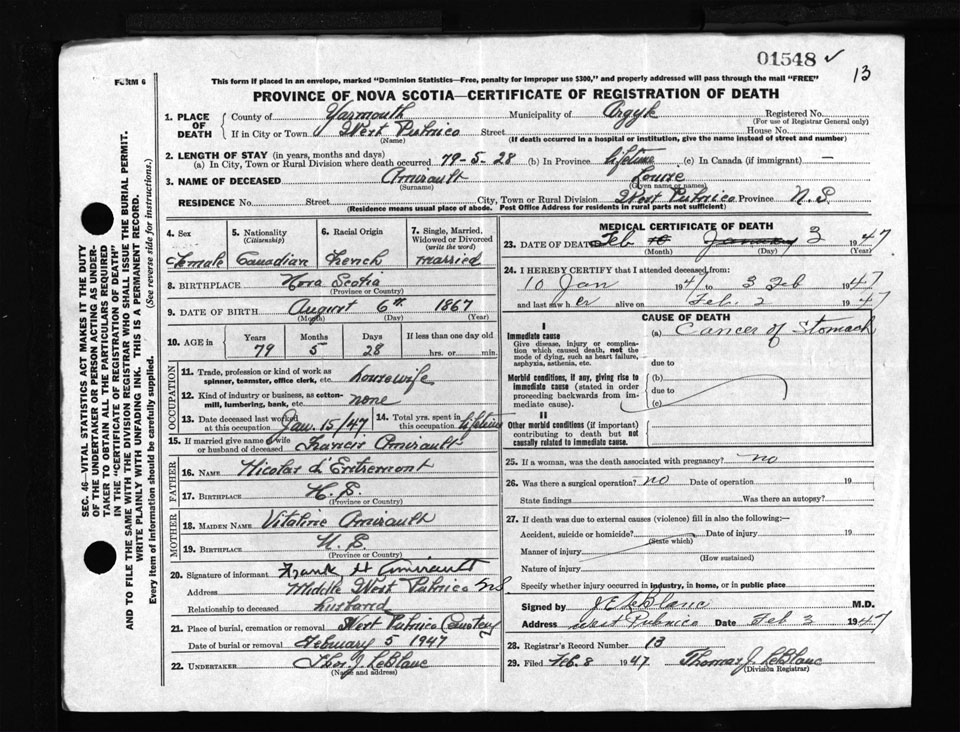 01548 ✓
13
FORM 6
This form if placed in an envelope, marked "Dominion Statistics—Free, penalty for improper use $300," and properly addressed will pass through the mail "FREE"
PROVINCE OF NOVA SCOTIA—CERTIFICATE OF REGISTRATION OF DEATH
1. PLACE OF DEATH
County of Yarmouth Municipality of Argyle Registered No.
(For use of Registrar General only)
If in City or Town West Pubnico Street House No.
(Name) (If death occurred in a hospital or institution, give the name instead of street and number)
2. LENGTH OF STAY (in years, months and days)
(a) In City, Town or Rural Division where death occurred 79-5-28 (b) In Province lifetime (c) In Canada (if immigrant) —
3. NAME OF DECEASED Amirault Louise
(Surname) (Given name or names)
RESIDENCE No. Street City, Town or Rural Division West Pubnico Province N.S.
(Residence means usual place of abode. Post Office Address for residents in rural parts not sufficient)
SEC. 46—VITAL STATISTICS ACT MAKES IT THE DUTY
OF THE UNDERTAKER OR PERSON ACTING AS UNDER-
TAKER TO OBTAIN ALL THE PARTICULARS REQUIRED
IN THE "CERTIFICATE OF REGISTRATION OF DEATH"
AND TO FILE THE SAME WITH THE DIVISION REGISTRAR WHO SHALL ISSUE THE BURIAL PERMIT.
WRITE PLAINLY WITH UNFADING INK. THIS IS A PERMANENT RECORD.
Every item of information should be carefully supplied. (See reverse side for instructions.)
4. Sex
Female
5. Nationality
(Citizenship)
Canadian
6. Racial Origin
French
7. Single, Married,
Widowed or Divorced
(write the word)
married
8. BIRTHPLACE Nova Scotia
(Province or Country)
9. DATE OF BIRTH August 6th 1867
(Month) (Day) (Year)
10. AGE in
Years Months Days If less than one day old
79 5 28 hrs. or min.
OCCUPATION
11. Trade, profession or kind of work as
spinner, teamster, office clerk, etc. housewife
12. Kind of industry or business, as cotton-
mill, lumbering, bank, etc. none
13. Date deceased last worked
at this occupation Jan. 15/47
14. Total yrs. spent in
this occupation lifetime
15. If married give name of wife
or husband of deceased Francis Amirault
FATHER
16. NAME Nicolas d'Entremont
17. BIRTHPLACE N.S.
(Province or Country)
MOTHER
18. MAIDEN NAME Vitaline Amirault
19. BIRTHPLACE N.S.
(Province or Country)
20. Signature of informant Frank H Amirault
Address Middle West Pubnico NS
Relationship to deceased husband
21. Place of burial, cremation or removal West Pubnico Cemetery
Date of burial or removal February 5 1947
22. UNDERTAKER Thos. J. LeBlanc
(Name and address)
MEDICAL CERTIFICATE OF DEATH
23. DATE OF DEATH Feb 10 January 3 1947
(Month) (Day) (Year)
24. I HEREBY CERTIFY that I attended deceased from:
10 Jan 1947 to 3 Feb 1947
and last saw her alive on Feb. 2 1947
CAUSE OF DEATH
I
Immediate cause (a) Cancer of Stomach
Give disease, injury or complica-
tion which caused death, not the
mode of dying, such as heart failure,
asphyxia, asthenia, etc.
due to
Morbid conditions, if any, giving rise to
immediate cause (stated in order
proceeding backwards from im-
mediate cause).
(b)
due to
(c)
II
Other morbid conditions (if important)
contributing to death but not
causally related to immediate cause.
25. If a woman, was the death associated with pregnancy? no
26. Was there a surgical operation? no Date of operation 19
State findings Was there an autopsy?
27. If death was due to external causes (violence) fill in also the following:—
Accident, suicide or homicide? Date of injury 19
(State which)
Manner of injury
(How sustained)
Nature of injury
Specify whether injury occurred in industry, in home, or in public place
Signed by J E LeBlanc M.D.
Address West Pubnico Date Feb 3 1947
28. Registrar's Record Number 13
29. Filed Feb. 8 1947 Thomas J. LeBlanc
(Division Registrar)